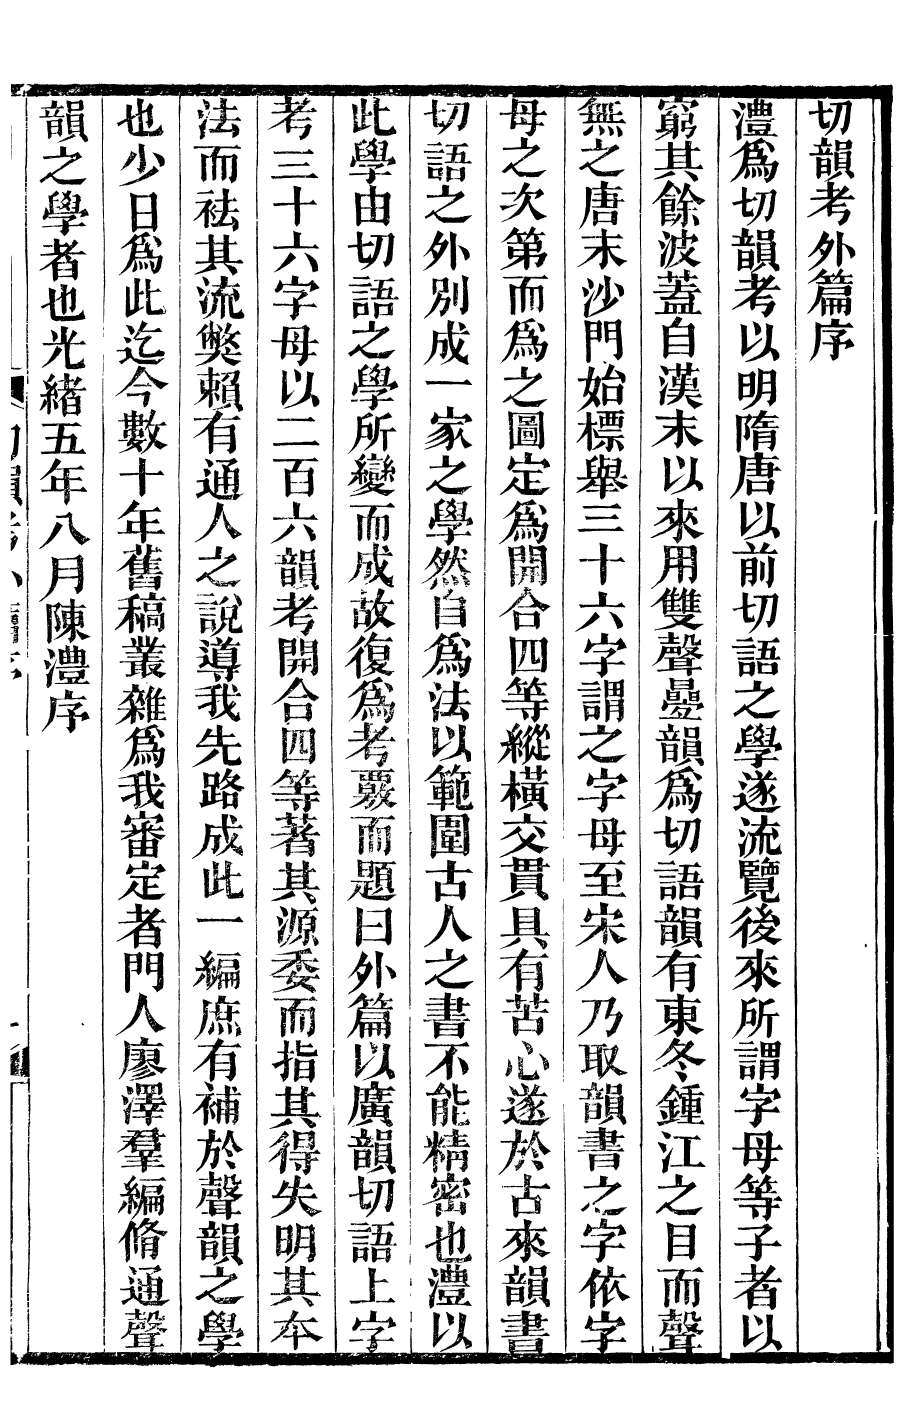 切韻考外篇序
澧爲切韻考以明隋唐以前切語之學遂流覽後來所謂字母等子者以
窮其餘波蓋自漢末以來用雙聲曡韻爲切語韻有東冬鍾江之目而聲
無之唐末沙門始標舉三十六字謂之字母至宋人乃取韻書之字依字
母之次第而爲之圖定爲開合四等縱橫交貫具有苦心遂於古來韻書
切語之外別成一家之學然自爲法以範圍古人之書不能精密也澧以
此學由切語之學所變而成故復爲考覈而題曰外篇以廣韻切語上字
考三十六字母以二百六韻考開合四等著其源委而指其得失明其本
法而祛其流獘賴有通人之說導我先路成此一編庶有補於聲韻之學
也少日爲此迄今數十年舊稿叢雜爲我審定者門人廖澤羣編脩通聲
韻之學者也光緒五年八月陳澧序